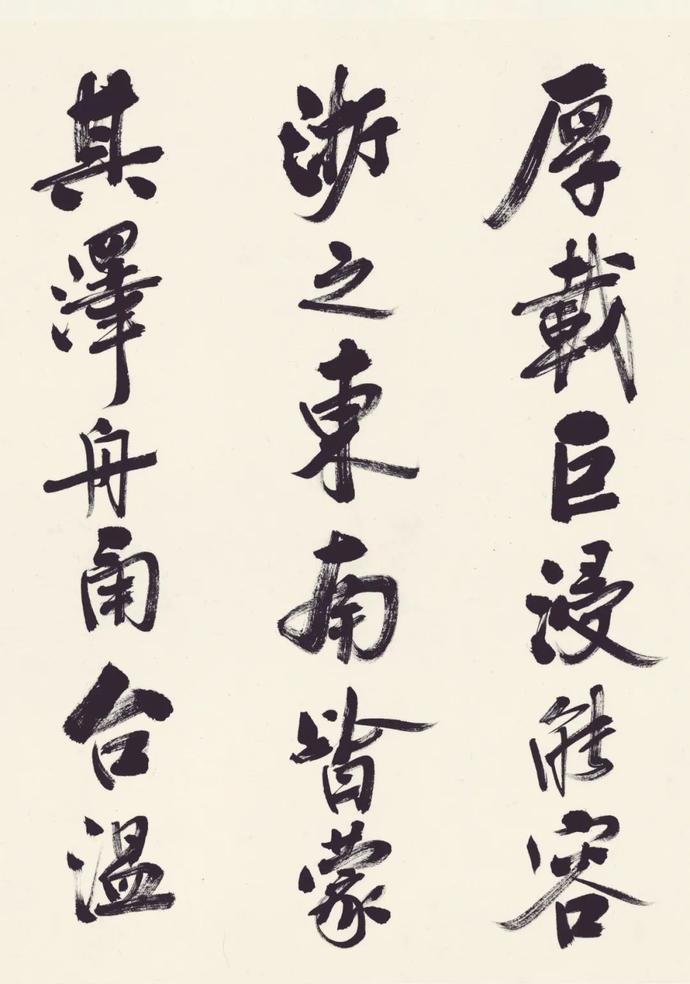 厚載巨浸能容
浙之東南皆蒙
其澤舟甬台溫